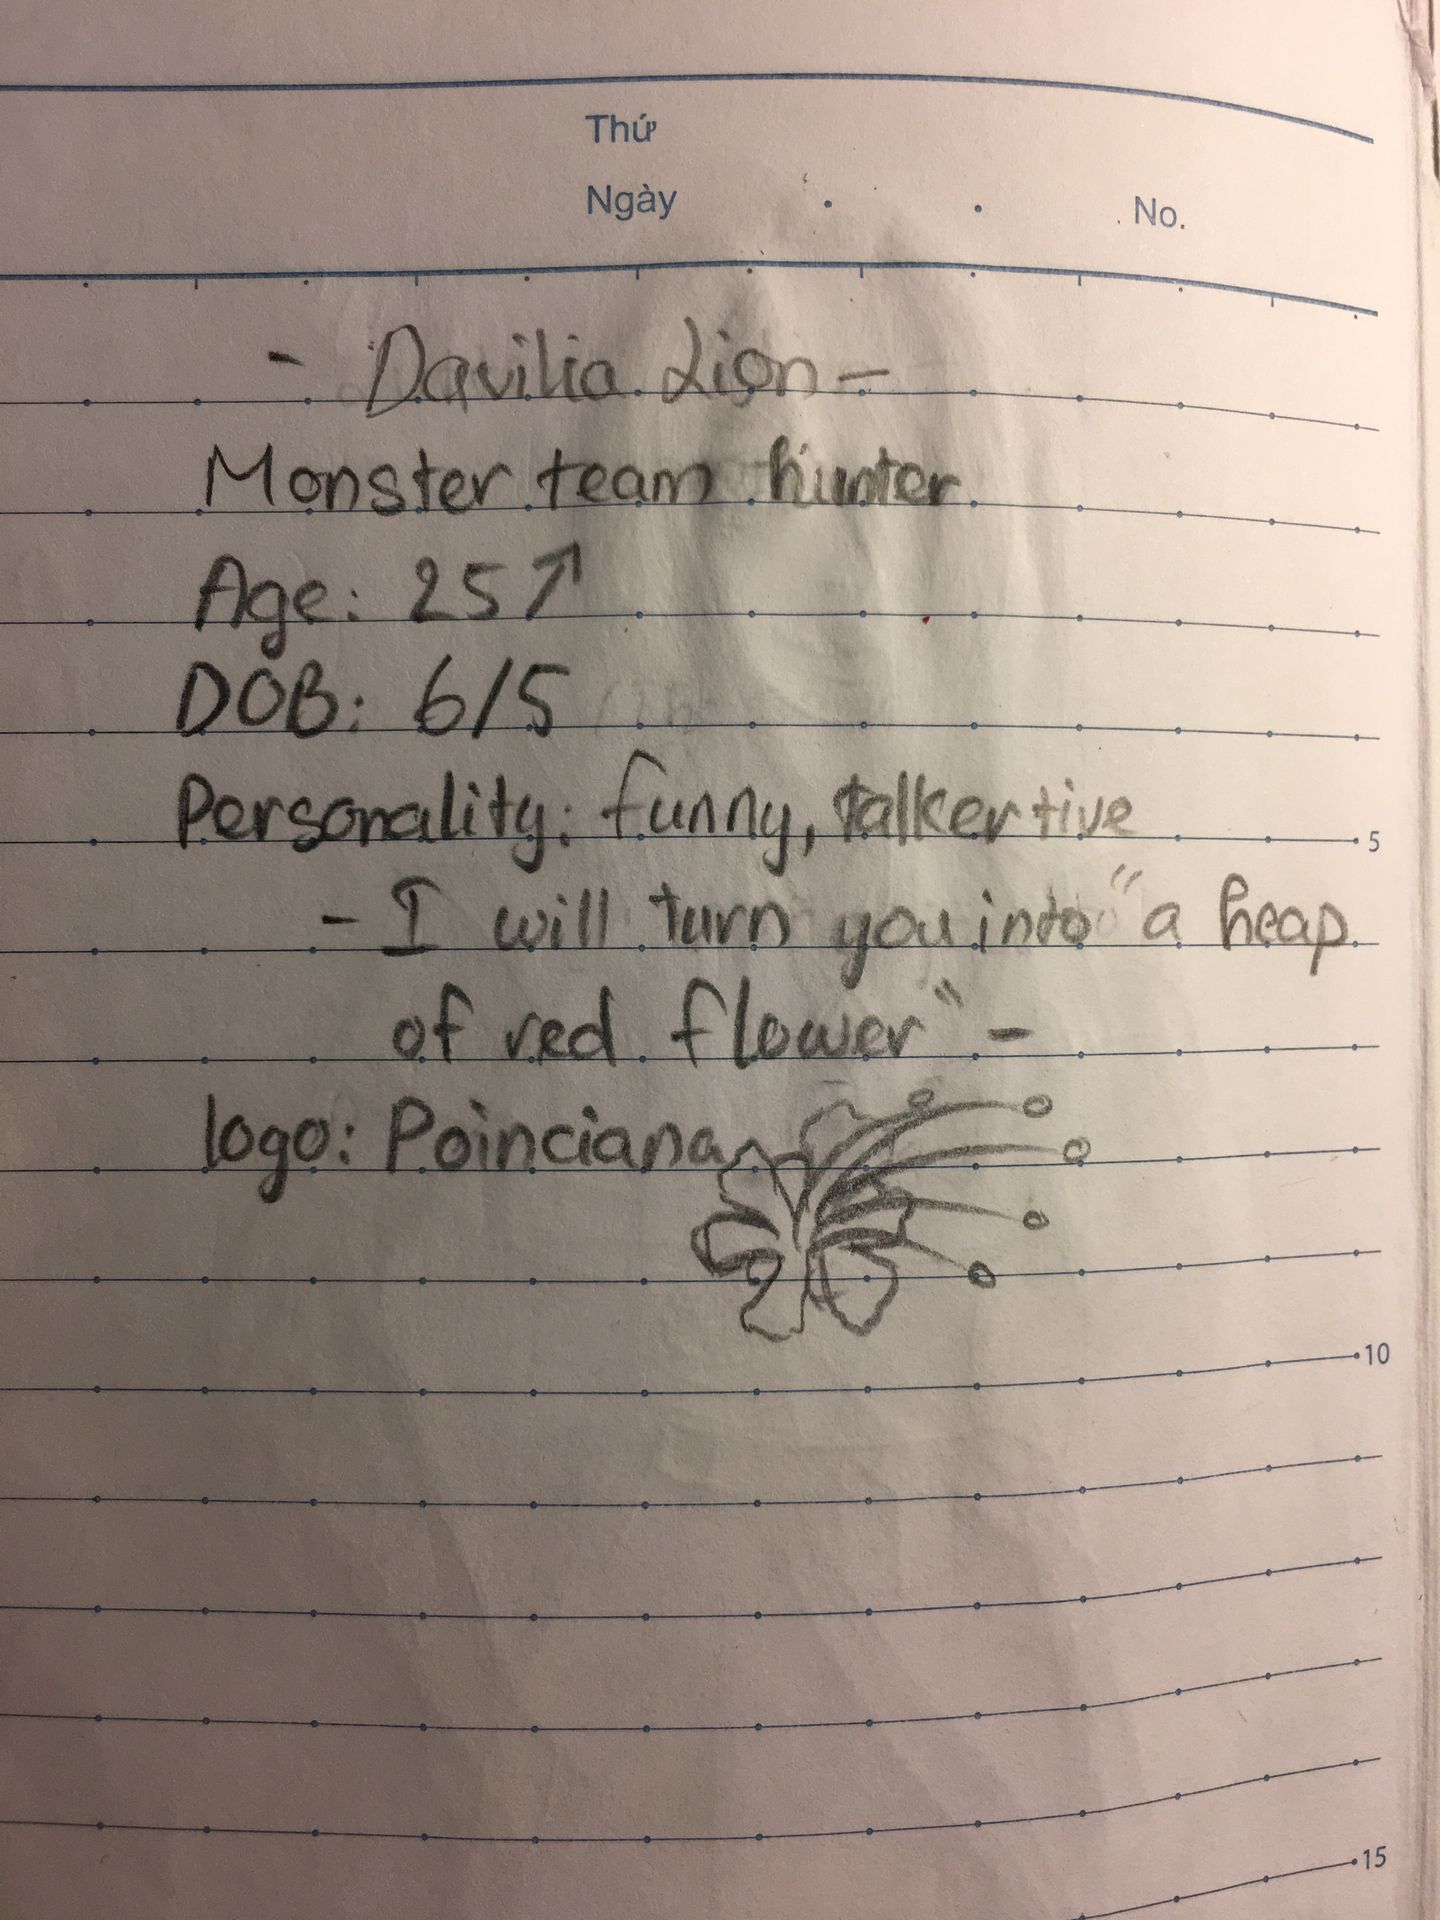 Thứ
Ngày . . No.
- Davilia Lion -
Monster team hunter
Age: 25↗
DOB: 6/5
Personality: funny, talkertive
5
- I will turn you into "a heap
of red flower" -
logo: Poinciana
10
15